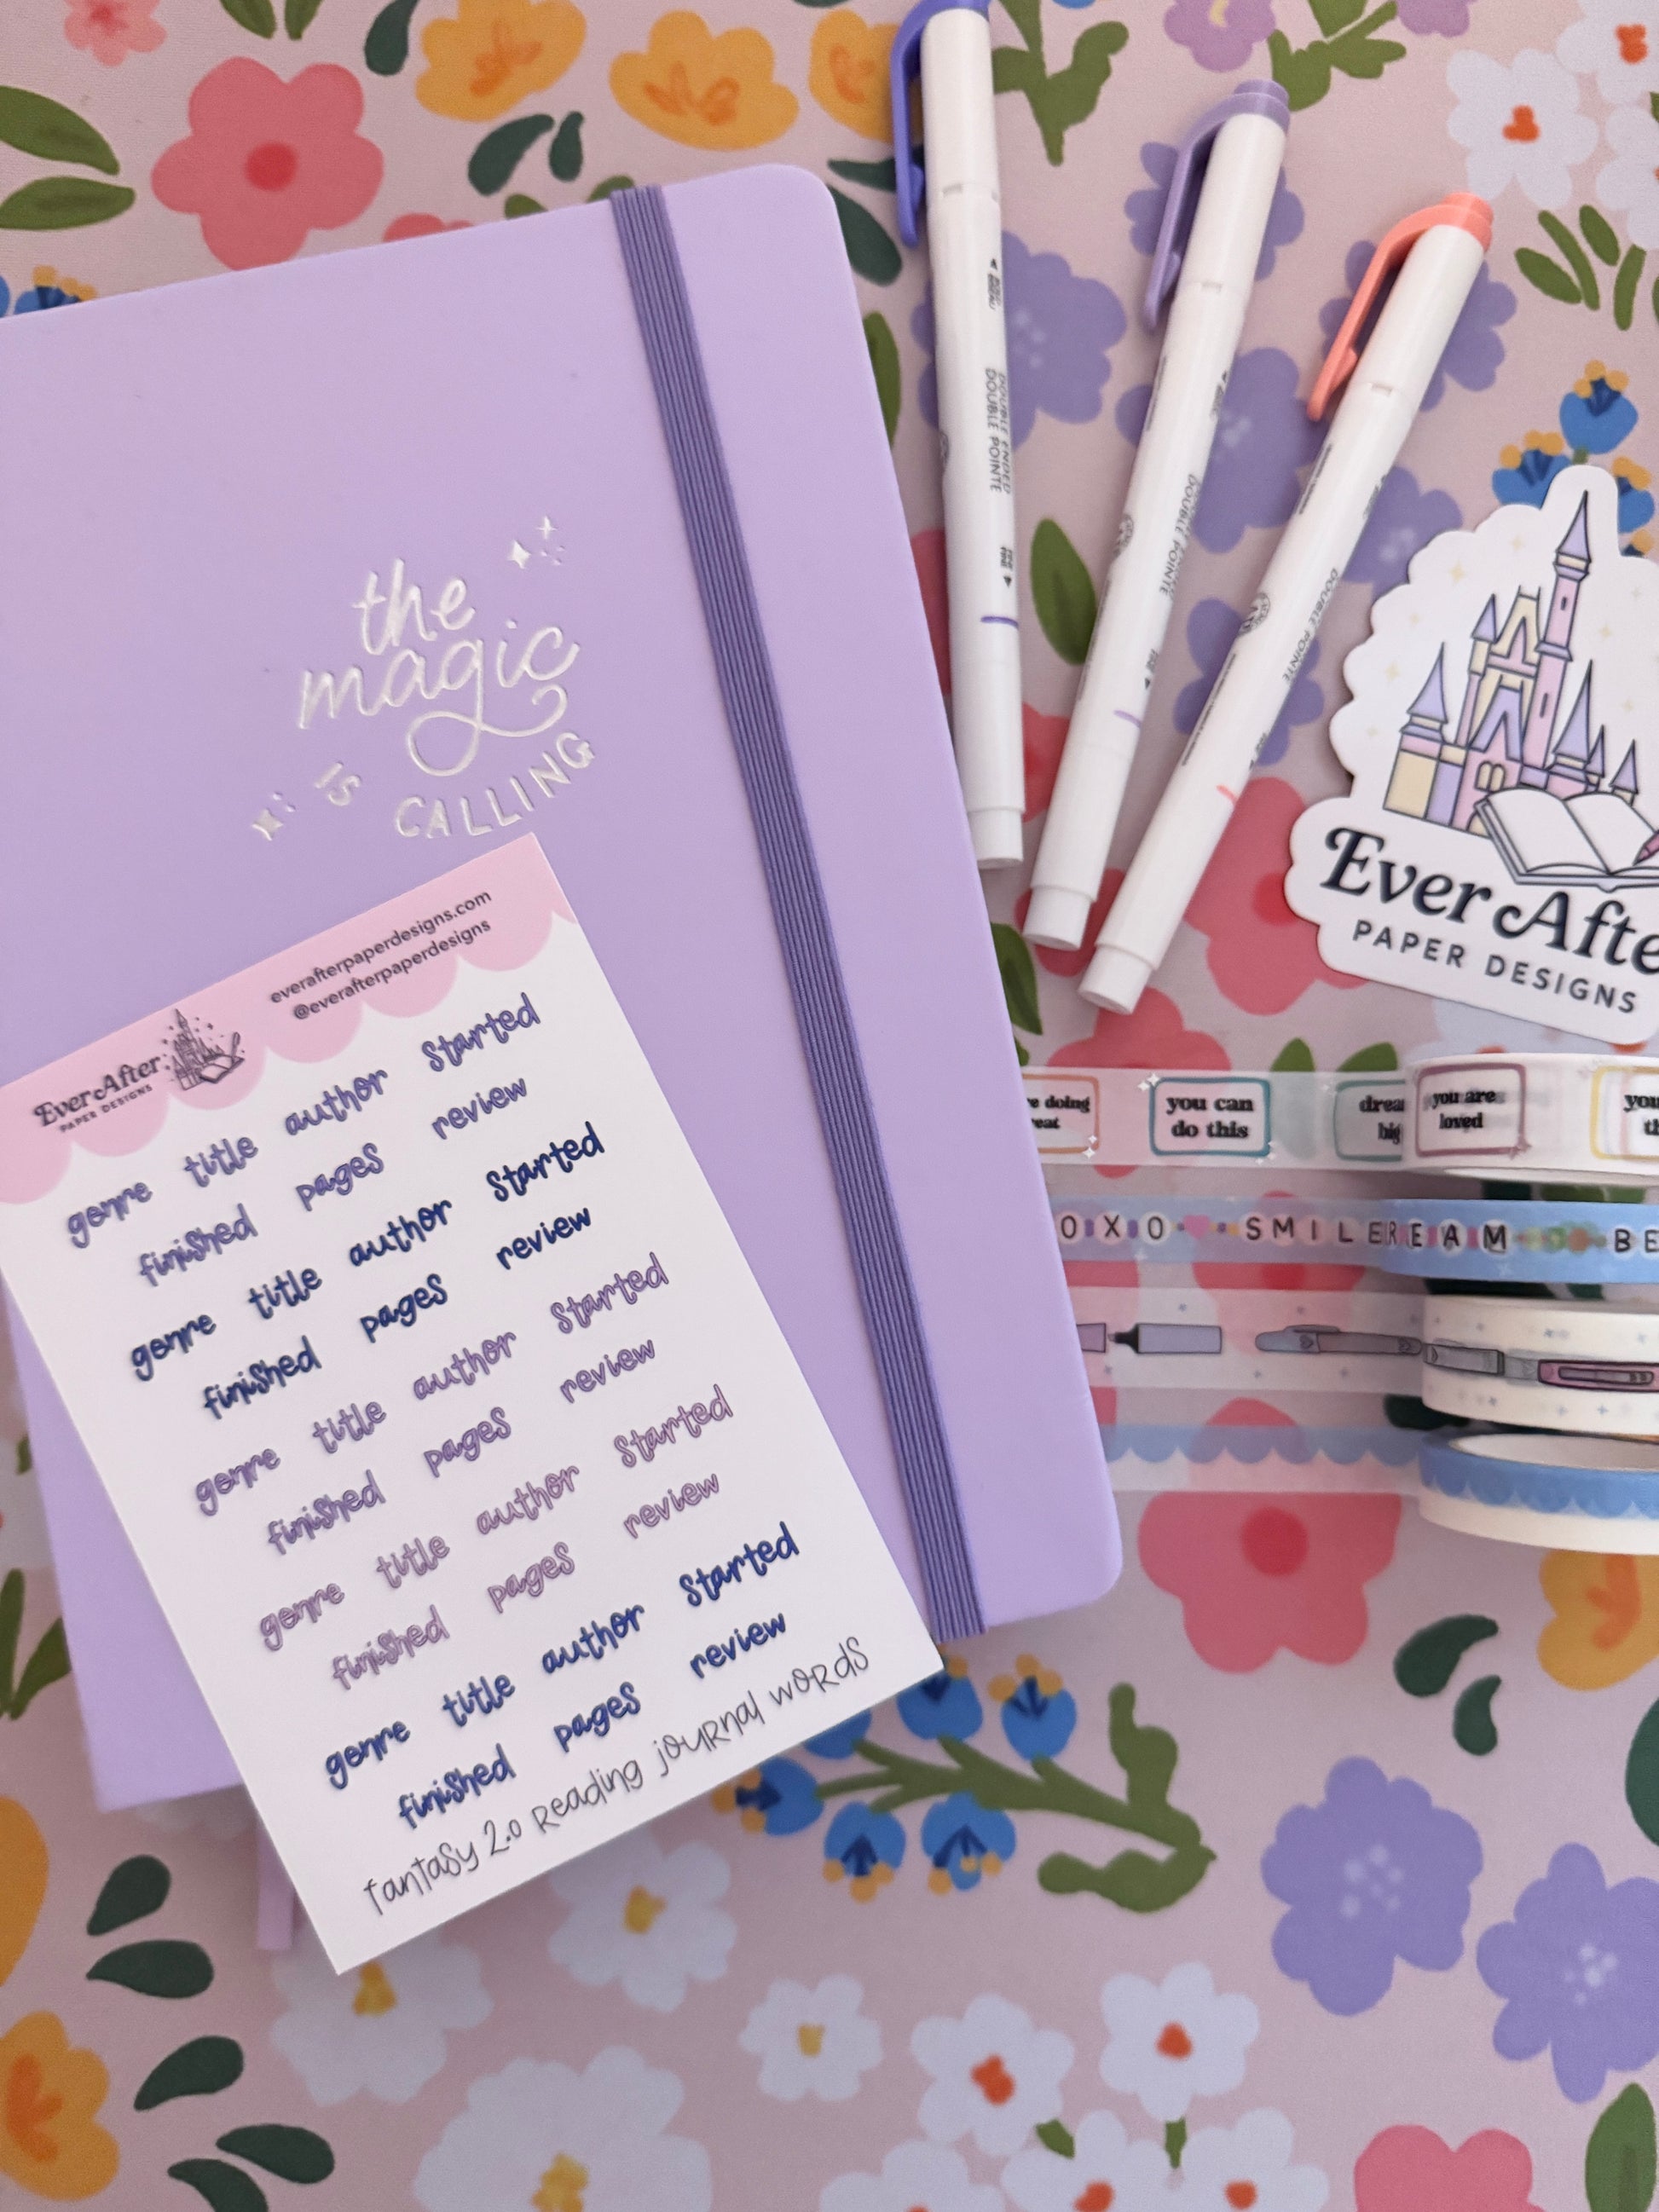 the
magic
IS
CALLING
everafterpaperdesigns.com
@everafterpaperdesigns
Ever After
PAPER DESIGNS
genre title author Started
finished pages review
genre title author Started
finished pages review
genre title author Started
finished pages review
genre title author Started
finished pages review
genre title author Started
finished pages review
fantasy 2.0 Reading journal words
DOUBLE ENDED
DOUBLE POINTE
DOUBLE POINTE
DOUBLE POINTE
Ever Afte
PAPER DESIGNS
doing
you can
do this
big
you are
loved
OXO SMILE REAM BE